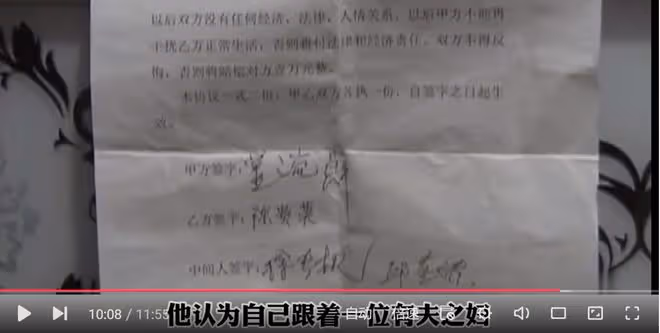 以后双方没有任何经济，法律，人情关系，以后甲方不能再
干扰乙方正常生活，否则将付法律和经济责任，双方不得反
悔，否则将赔偿对方壹万元整。
本协议一式二份，甲乙双方各执一份，自签字之日起生
效。
甲方签字：
乙方签字：陈
中间人签字：
10:08 / 11:55
自动
倍速
他认为自己跟着一位有夫之妇